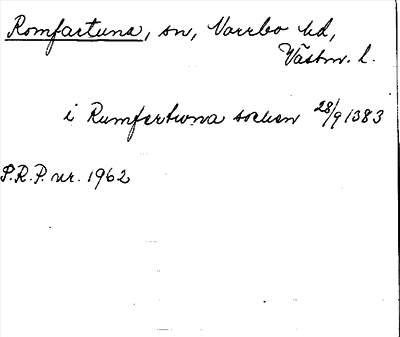 Romfartuna, sn, Norrbo hd,
Västm. l.
i Rumfertuna socken 28/9 1383
P.R.P. nr. 1962